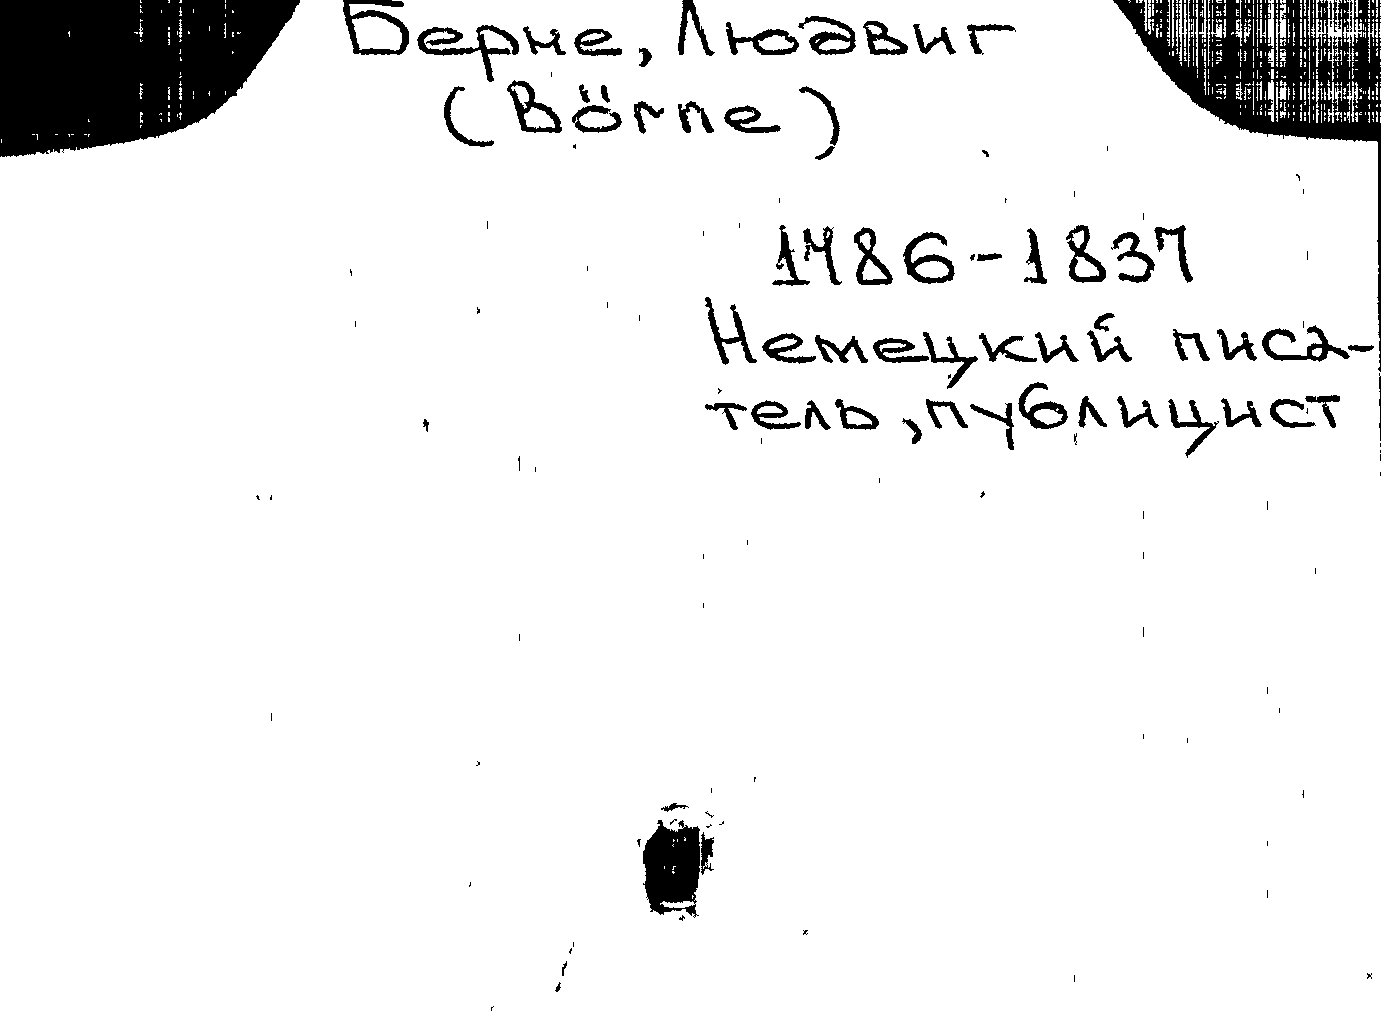 Берне, Людвиг
(Börne)
1786-1837
Немецкий писа-
тель, публицист